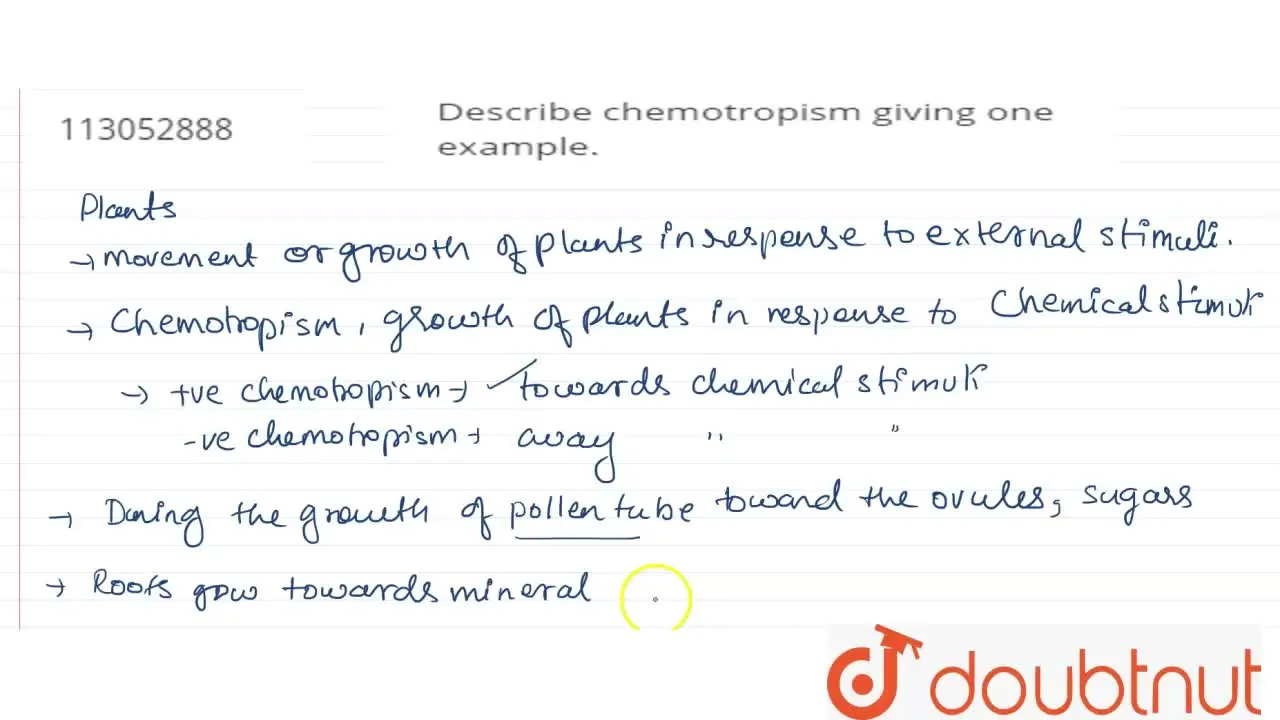 113052888
Describe chemotropism giving one
example.
Plants
→ movement or growth of plants in response to external stimuli.
→ Chemotropism, growth of plants in response to Chemical stimuli
→ +ve chemotropism → towards chemical stimuli
-ve chemotropism → away " "
→ During the growth of pollen tube toward the ovules, sugars
→ Roots grow towards mineral
doubtnut